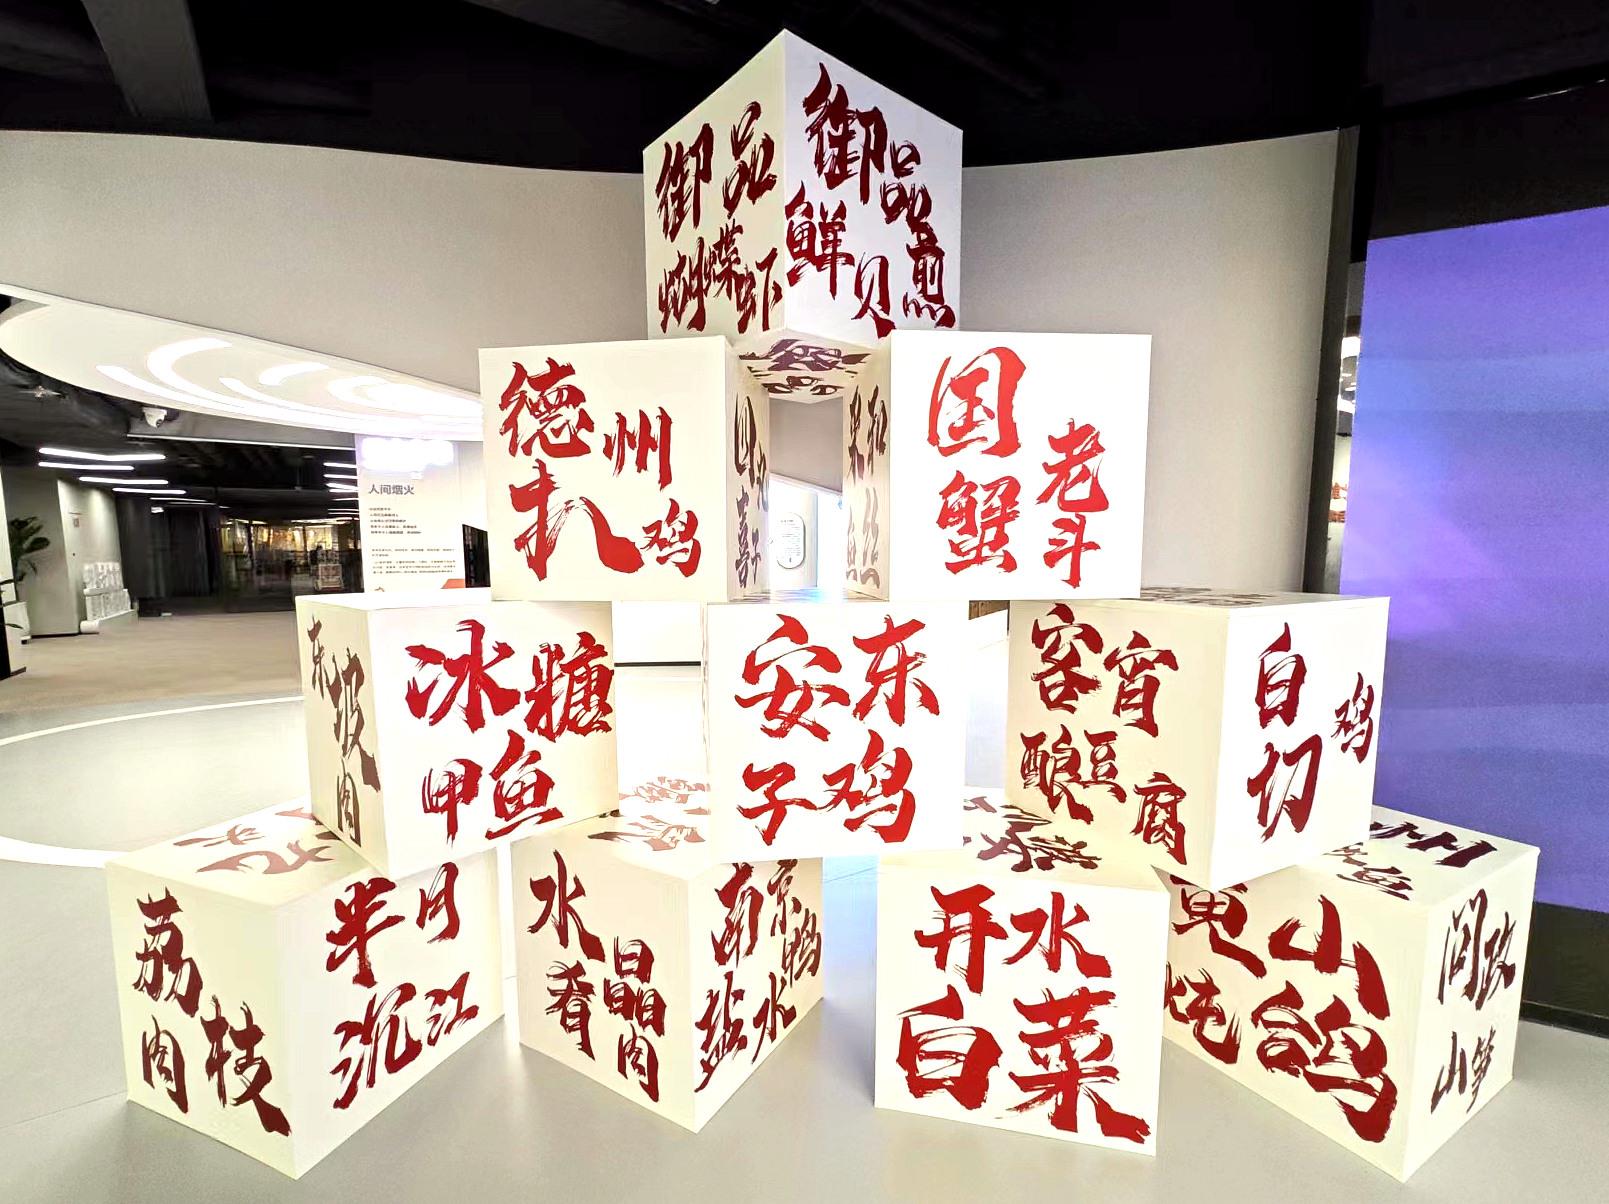 御品
蝴蝶虾
御品
鲜贝煎
德州
扒鸡
四喜
国老
蟹斗
人间烟火
东坡肉
冰糖
甲鱼
安东
子鸡
客宵
酿豆腐
白切鸡
荔枝肉
半月
沉江
水晶
肴肉
南京
盐水鸭
开水
白菜
黄山
炖鸽
问政
山笋